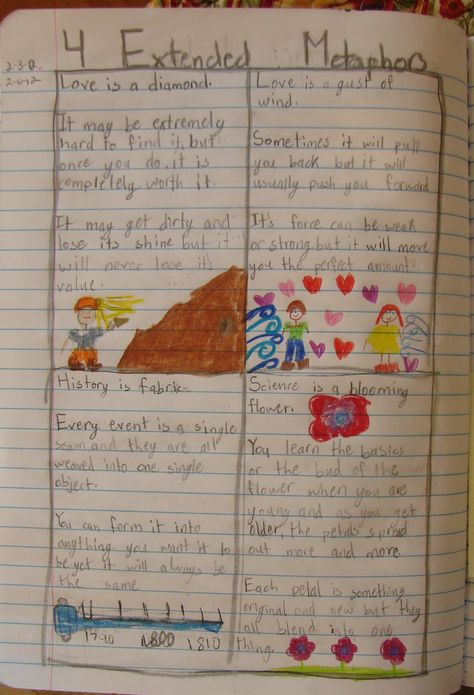 4 Extended Metaphors
2-3-0
Love is a diamond.
It may be extremely
hard to find it, but
once you do, it is
completely worth it.
It may get dirty and
lose its shine but it
will never lose it's
value.
Love is a gust of
wind.
Sometimes it will pull
you back but it will
usually push you forward
It's force can be weak
or strong but it will move
you the perfect amount.
History is fabric.
Every event is a single
seam and they are all
weaved into one single
object.
You can form it into
anything you want it to
be yet it will always be
the same
1790 1800 1810
Science is a blooming
flower.
You learn the basics
or the bud of the
flower when you are
young and as you get
older, the petals spread
out more and more
Each petal is something
original and new but they
all blend into one
thing.